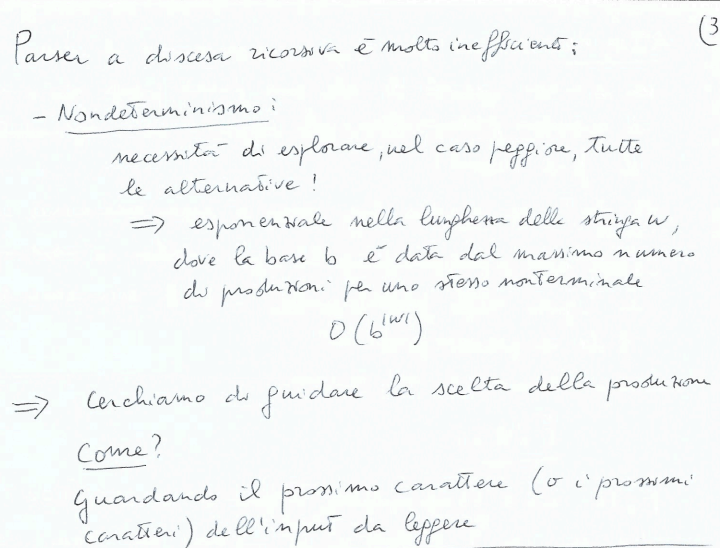 (3
Parser a discesa ricorsiva è molto inefficiente:
- Nondeterminismo:
necessità di esplorare, nel caso peggiore, tutte
le alternative!
=> esponenziale nella lunghezza della stringa w,
dove la base b è data dal massimo numero
di produzioni per uno stesso nonterminale
O(b^|w|)
=> Cerchiamo di guidare la scelta della produzione
Come?
Guardando il prossimo carattere (o i prossimi
caratteri) dell'input da leggere